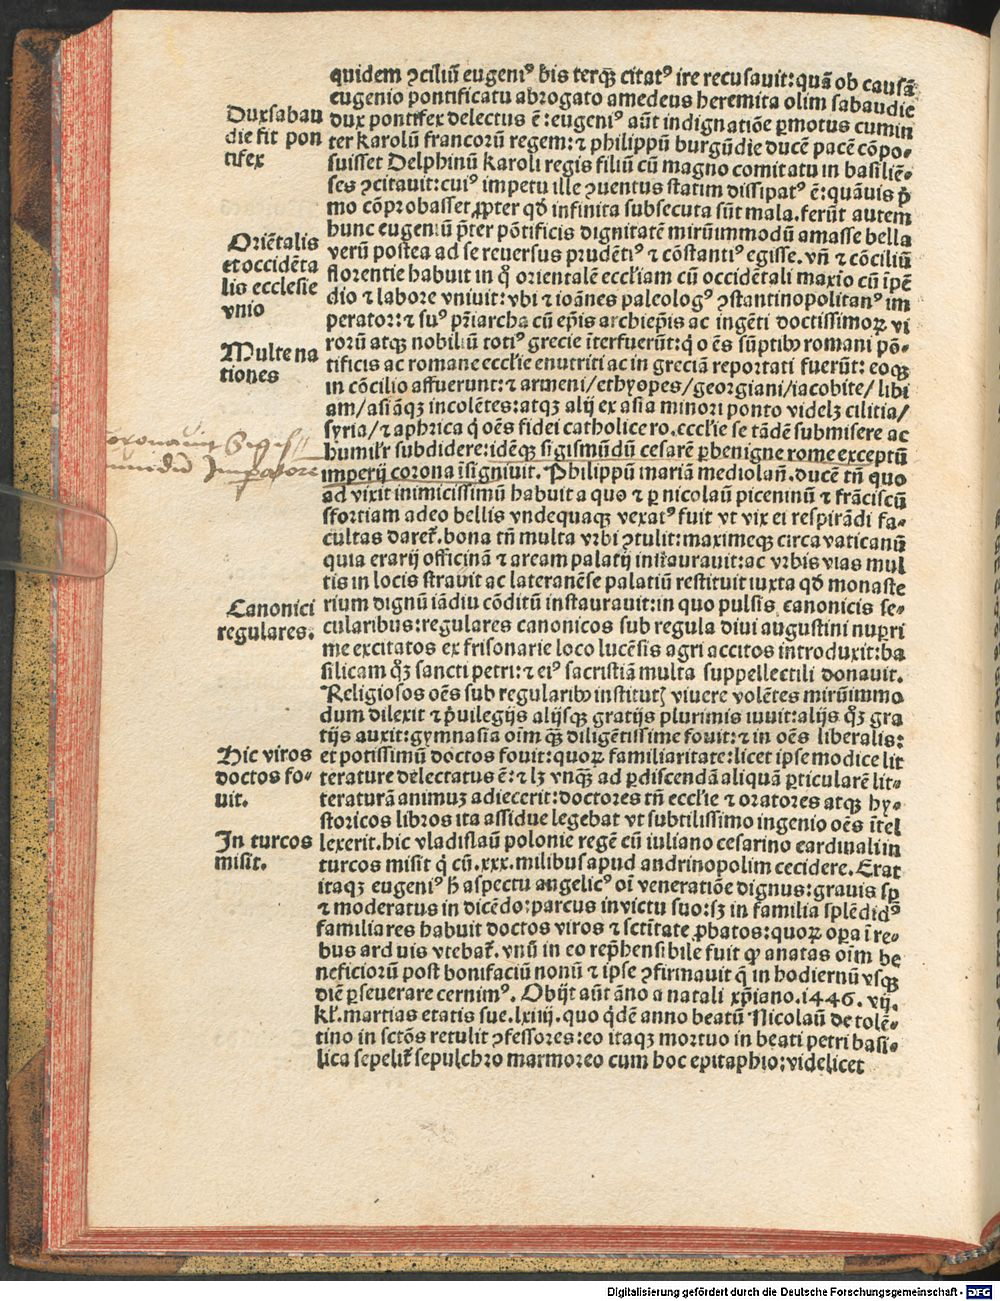 quidem ꝯciliū eugeniꝰ bis terqꝫ citatꝰ ire recusauit:quā ob causā
eugenio pontificatu abrogato amedeus heremita olim sabaudie
dux pontifex delectus ē:eugeniꝰ aūt indignatiōe ꝑmotus cum in
ter karolū francorū regem:⁊ philippū burgūdie ducē pacē cōpo⸗
suisset Delphinū karoli regis filiū cū magno comitatu in basiliē⸗
ses ꝯcitauit:cuiꝰ impetu ille ꝯuentus statim dissipatꝰ ē:quāuis p̄
mo cōprobasset ꝓpter qd̓ infinita subsecuta sūt mala.ferūt autem
hunc eugeniū p̄ter pōtificis dignitatē mirūimmodū amasse bella
verū postea ad se reuersus prudētiꝰ ⁊ cōstantiꝰ egisse. vn̄ ⁊ cōciliū
florentie habuit in q̊ orientalē eccl̓iam cū occidētali maxīo cū īpē
dio ⁊ labore vniuit:vbi ⁊ ioānes paleologꝰ ꝯstantinopolitanꝰ im
perator:⁊ suꝰ pr̄iarcha cū ep̄is archiep̄is ac ingēti doctissimoꝝ vi
rorū atqꝫ nobiliū totiꝰ grecie īterfuerūt:q̇ oēs sūptibꝰ romani pō⸗
tificis ac romane eccl̓ie enutriti ac in greciā reportati fuerūt: eoqꝫ
in cōcilio affuerunt:⁊ armeni/ethyopes/georgiani/iacobite/libi
am/asiāqꝫ incolētes:atqꝫ alij ex asia minori ponto videlꝫ cilitia/
syria/⁊ aphrica q̇ oēs fidei catholice ro.eccl̓ie se tādē submisere ac
humilr̄ subdidere:idēqꝫ sigismūdū cesarē ꝑbenigne rome exceptū
imperij corona īsigniuit. Philippū mariā mediolan̄. ducē tn̄ quo
ad vixit inimicissimū habuit a quo ⁊ ꝑ nicolaū piceninū ⁊ frāciscū
sfortiam adeo bellis vndequaqꝫ vexatꝰ fuit vt vix ei respirādi fa⸗
cultas daret̄. bona tn̄ multa vrbi ꝯtulit:maximeqꝫ circa vaticanū
quia erarij officinā ⁊ aream palatij instaurauit:ac vrbis vias mul
tis in locis strauit ac lateranēse palatiū restituit iuxta qd̓ monaste
rium dignū iādiu cōditū instaurauit:in quo pulsis canonicis se⸗
cularibus:regulares canonicos sub regula diui augustini nuꝑri
me excitatos ex frisonarie loco lucēsis agri accitos introduxit:ba
silicam qꝫ sancti petri:⁊ eiꝰ sacristiā multa suppellectili donauit.
Religiosos oēs sub regularibꝰ institutꝭ viuere volētes mirūimmo
dum dilexit ⁊ p̄uilegijs alijsqꝫ gratijs plurimis iuuit:alijs qꝫ gra
tijs auxit:gymnasia oīm qꝫ diligētissime fouit:⁊ in oēs liberalis:
et potissimū doctos fouit:quoꝝ familiaritate:licet ipse modice lit
terature delectatus ē:⁊ lꝫ vnqꝫ ad ꝑdiscendā aliquā ꝑticularē lit⸗
teraturā animuꝫ adiecerit:doctores tn̄ eccl̓ie ⁊ oratores atqꝫ hy⸗
storicos libros ita assidue legebat vt subtilissimo ingenio oēs ītel
lexerit.hic vladislaū polonie regē cū iuliano cesarino cardinali in
turcos misit q̇ cū.xxx.milibus apud andrinopolim cecidere. Erat
itaqꝫ eugeniꝰ h̄ aspectu angelicꝰ oī veneratiōe dignus:grauis sꝑ
⁊ moderatus in dicēdo:parcus in victu suo:sꝫ in familia splēdidꝰ
familiares habuit doctos viros ⁊ sctītate ꝓbatos:quoꝝ oꝑa ī re⸗
bus arduis vtebat̄. vnū in eo rep̄hensibile fuit ꝙ anatas oīm be
neficiorū post bonifaciū nonū ⁊ ipse ꝯfirmauit q̄ in hodiernū vsqꝫ
diē ꝑseuerare cernimꝰ. Obijt aūt āno a natali xp̄iano.1446. vij.
kl̄.martias etatis sue.lxiiij.quo q̇dē anno beatū Nicolaū de tolē⸗
tino in sctōs retulit ꝯfessores:eo itaqꝫ mortuo in beati petri basi⸗
lica sepelit̄ sepulchro marmoreo cum hoc epitaphio:videlicet
Dux sabau
die fit pon
tifex
Oriētalis
et occidēta
lis ecclesie
vnio
Multe na
tiones
coronauit Sigis//
mundū Imꝑatorē
Canonici
regulares.
Hic viros
doctos fo⸗
uit.
In turcos
misit.
Digitalisierung gefördert durch die Deutsche Forschungsgemeinschaft - DFG